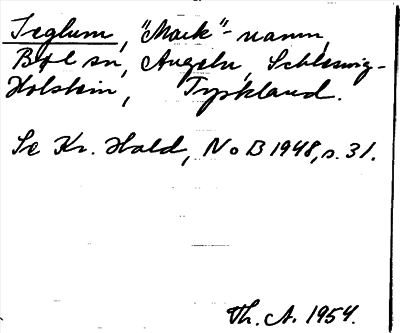 Teglum, "Mark"-namn,
Böl sn, Angeln, Schleswig-
Holstein, Tyskland.
Se Kr. Hald, NoB 1948, s. 31.
Th. A. 1954.